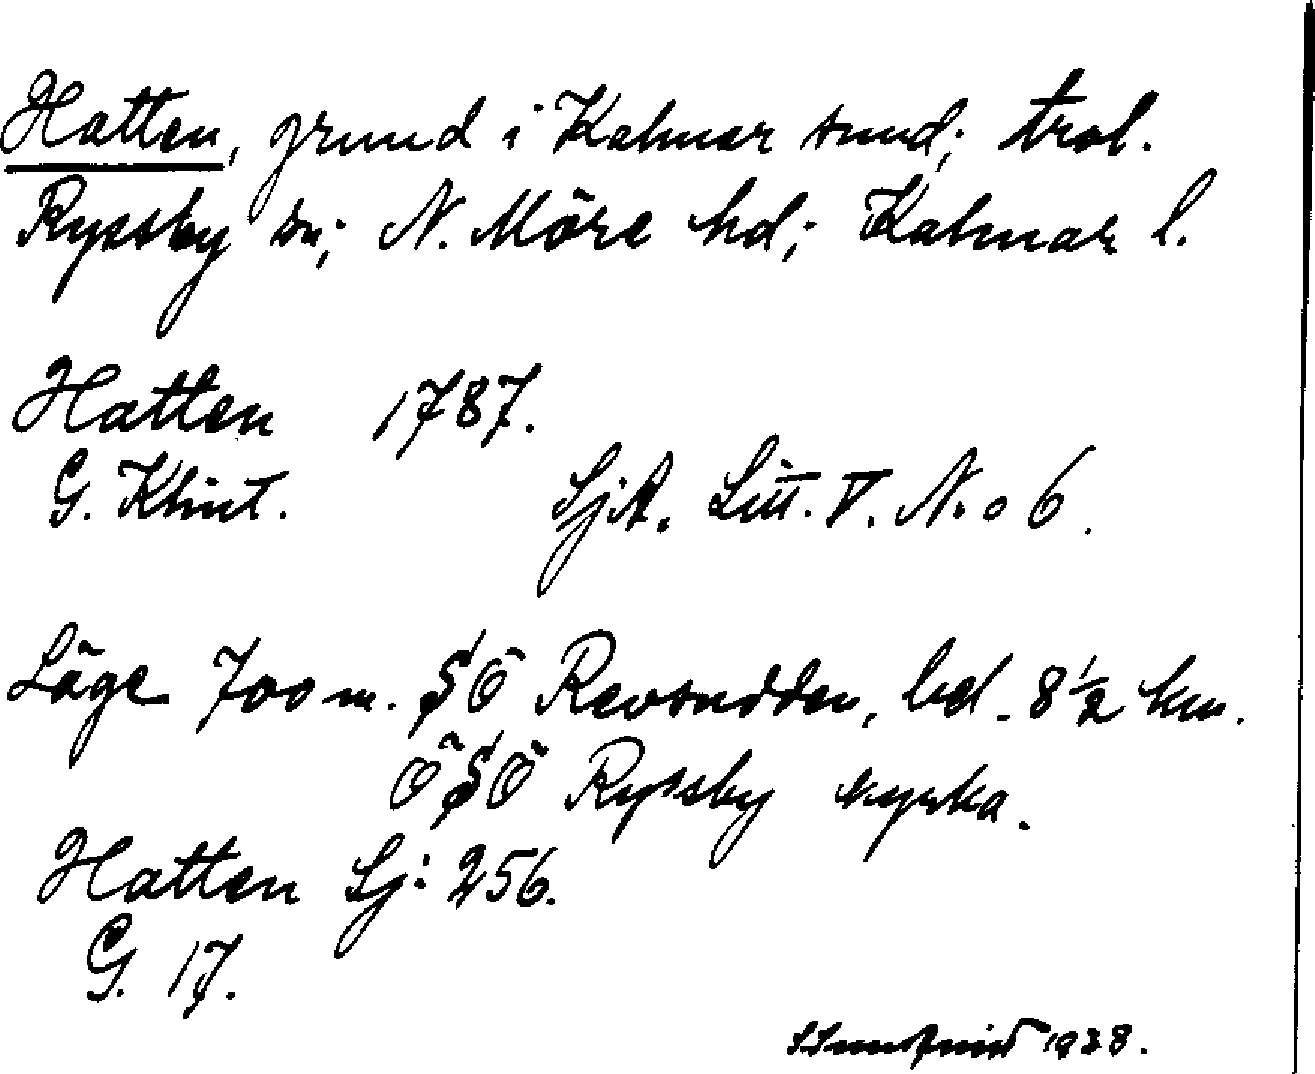 Hatten, grund i Kalmar sund; trol.
Ryssby sn; N. Möre hd; Kalmar l.
Hatten 1787.
G. Klint. SjA. Litt. V. N:o 6.
Läge 700 m. SÖ Revsudden, bel. 8 1/2 km.
ÖSÖ Ryssby kyrka.
Hatten Sj: 256.
G. 17.
1938.